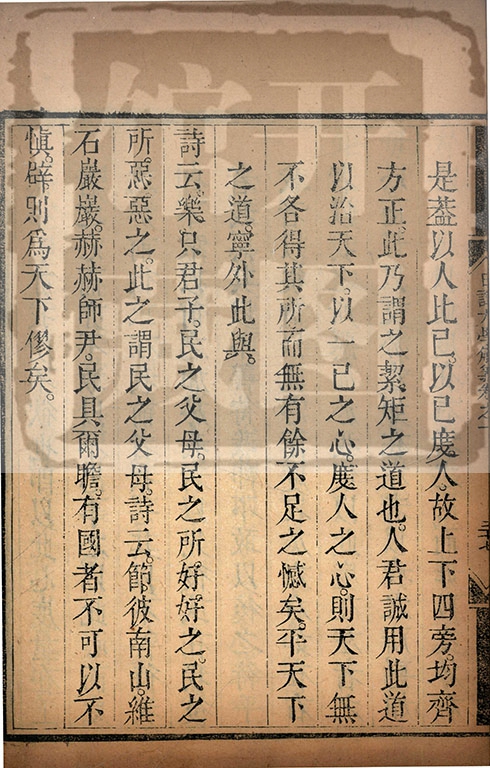 是葢以人比己。以己度人。故上下四旁。均齊
方正。此乃謂之絜矩之道也。人君誠用此道
以治天下。以一己之心。度人之心。則天下無
不各得其所。而無有餘不足之憾矣。平天下
之道。寧外此與。
詩云。樂只君子。民之父母。民之所好。好之。民之
所惡。惡之。此之謂民之父母。詩云。節彼南山。維
石巖巖。赫赫師尹。民具爾瞻。有國者不可以不
慎。辟則爲天下僇矣。